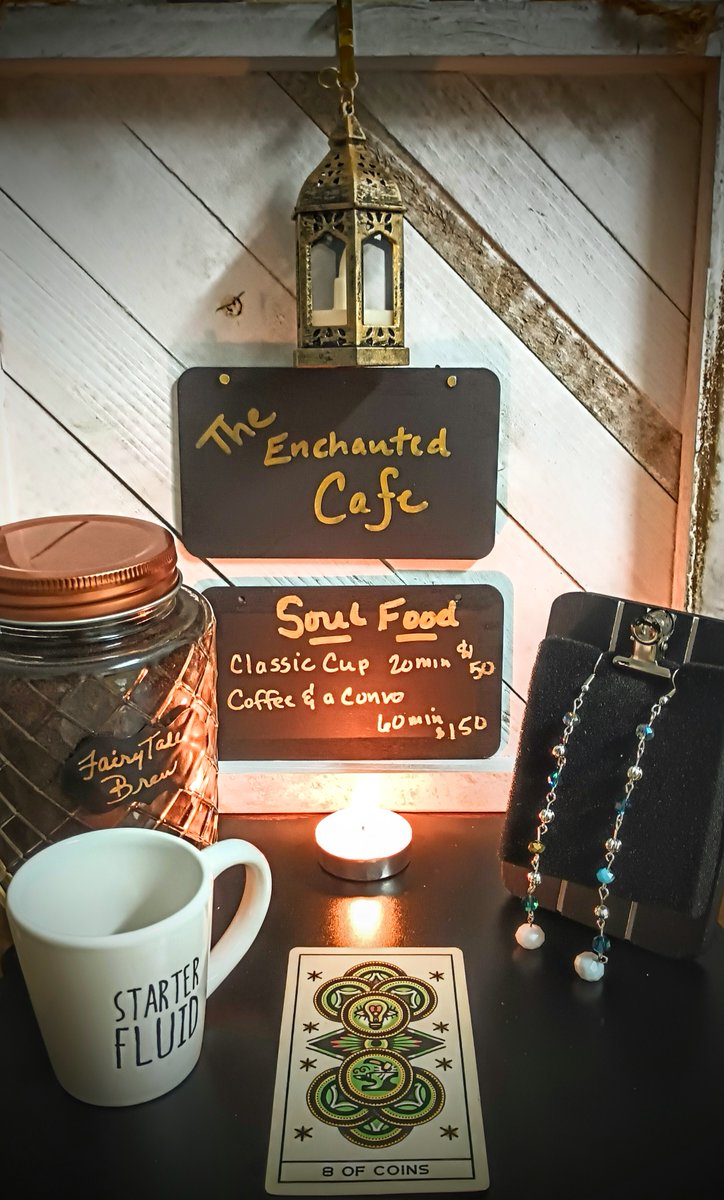 The
Enchanted
Cafe
Soul Food
Classic Cup 20min $50
Coffee & a Convo
60min $150
FairyTale
Brew
STARTER
FLUID
8 OF COINS